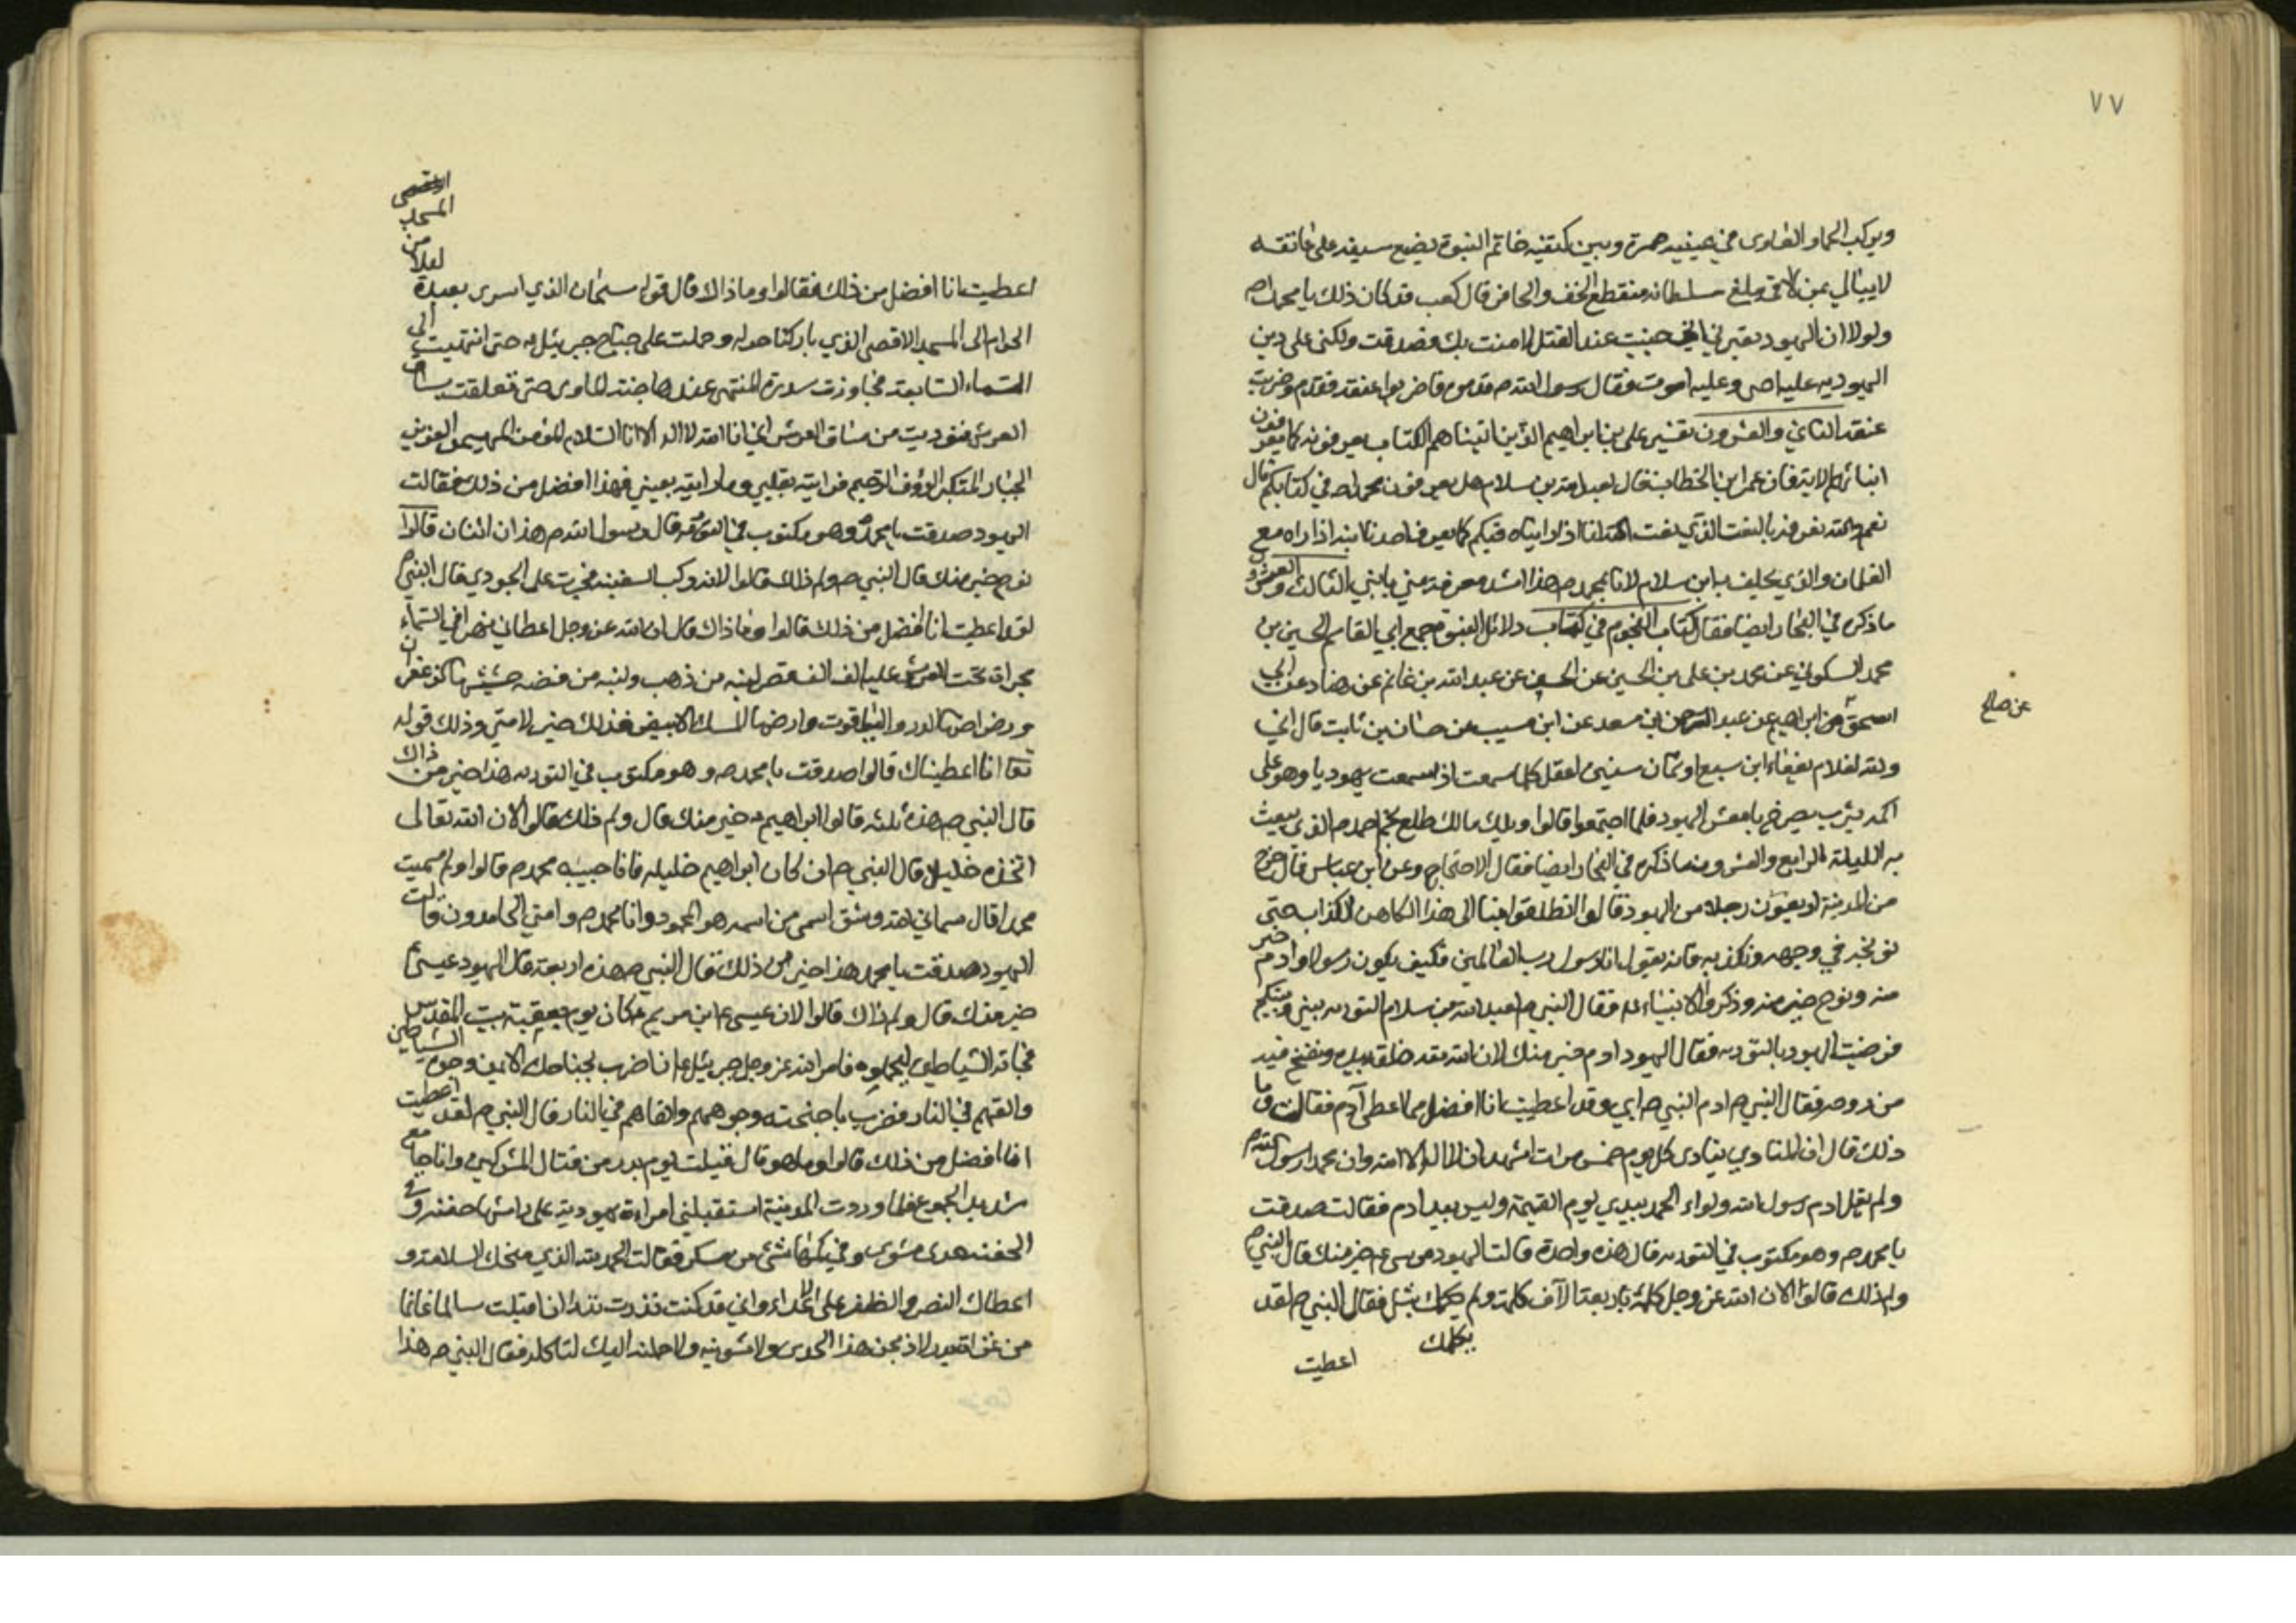 ٧٧
ويركب الحمار العاري في عينيه حمرة وبين كتفيه خاتم النبوة يضع سيفه على عاتقه
لا يبالي بمن لاقى ويبلغ سلطانه منقطع الخف والحافر قال كعب قد كان ذلك يا محمد ص
ولولا ان اليهود تعيرني اني جبنت عند القتل لامنت بك وصدقت ولكني على دين
اليهودية عليه احيى وعليه اموت فقال رسول الله ص قدموه فاضربوا عنقه فقدم وضربت
عنقه الثاني والعشرون تفسير علي بن ابراهيم الذين اتيناهم الكتاب يعرفونه كما يعرفون
ابنائهم الاية فان عمر ابن الخطاب قال لعبد الله بن سلام هل يعرفون محمدا ص في كتابكم قال
نعم والله نعرفه بالنعت الذي نعت الله لنا اذ رايناه فيكم كما يعرف احدنا ابنه اذا راه مع
الغلمان والذي يحلف به ابن سلام لانا بمحمد ص هذا اشد معرفة مني بابني الثالث والعشرون
ما ذكره في البحار ايضا فقال كتاب النجوم في كتاب دلائل النبوة جمع ابي القاسم الحسين بن
محمد السكوني عن محمد بن علي بن الحسين عن الحسن عن عبد الله بن غانم عن هناد عن ابي
اسحق عن ابراهيم عن عبد الرحمن بن سعد عن ابن مسيب عن حسان بن ثابت قال اني
عن صالح
والله لغلام يفعاء ابن سبع او ثمان سنين اعقل كلما سمعت اذ سمعت يهوديا وهو على
اكمه يثرب يصرخ يا معشر اليهود فلما اجتمعوا قالوا ويلك مالك طلع نجم احمد ص الذي يبعث
به الليلة الرابع والعشرون ما ذكره في البحار ايضا فقال الاحتجاج وعن ابن عباس قال خرج
من المدينة اربعون رجلا من اليهود قالوا انطلقوا بنا الى هذا الكاهن الكذاب حتى
نوبخه في وجهه ونكذبه فانه يقول انا رسول رب العالمين فكيف يكون رسولا وادم خير
منه ونوح خير منه وذكروا الانبياء ع فقال النبي ص لعبد الله بن سلام التورية بيني وبينكم
فرضيت اليهود بالتورية فقال اليهود ادم خير منك لان الله عز خلقه بيده ونفخ فيه
من روحه فقال النبي ص ادم النبي ص ابي وقد اعطيت انا افضل مما اعطى آدم فقالت وما
ذلك قال ان المنادي ينادي كل يوم خمس مرات اشهد ان لا اله الا الله وان محمدا رسول الله ص
ولم يقل ادم رسول الله ولواء الحمد بيدي يوم القيمة وليس بيد ادم فقالت صدقت
يا محمد ص وهو مكتوب في التورية قال هذه واحدة قالت اليهود موسى ع خير منك قال النبي ص
ولم ذلك قالوا لان الله عز وجل كلمه باربعة الآف كلمة ولم يكلمك بشئ فقال النبي ص لقد
يكلمك
اعطيت
ليلا من المسجد
اعطيت انا افضل من ذلك فقالوا وما ذاك قال قوله سبحان الذي اسرى بعبده
الحرام الى المسجد الاقصى الذي باركنا حوله وحملت على جناح جبرئيل ع حتى انتهيت الى
السماء السابعة فجاوزت سدرة المنتهى عندها جنة الماوى حتى تعلقت بساق
العرش فنوديت من ساق العرش اني انا الله لا اله الا انا السلام المؤمن المهيمن العزيز
الجبار المتكبر الرؤف الرحيم فرايته بقلبي وما رايته بعيني فهذا افضل من ذلك فقالت
اليهود صدقت يا محمد وهو مكتوب في التورية قال رسول الله ص هذان اثنان قالوا
نوح خير منك قال النبي ص ولم ذلك قالوا لانه ركب السفينة فجرت على الجودي قال النبي ص
لقد اعطيت انا افضل من ذلك قالوا وما ذاك قال ان الله عز وجل اعطاني نهرا في السماء
مجراه تحت العرش عليه الف الف قصر لبنة من ذهب ولبنة من فضة حشيشها الزعفران
ورضراضها الدر والياقوت وارضها المسك الابيض فذلك خير لامتي وذلك قوله
تعا انا اعطيناك قالوا صدقت يا محمد ص وهو مكتوب في التورية هذا خير من ذاك
قال النبي ص هذه ثلثه قالوا ابراهيم ع خير منك قال ولم ذلك قالوا لان الله تعالى
اتخذه خليلا قال النبي ص ان كان ابراهيم خليله فانا حبيبه محمد ص قالوا ولم سميت
محمدا قال سماني الله وشق اسمي من اسمه هو المحمود وانا محمد ص وامتي الحامدون قالت
اليهود صدقت يا محمد هذا خير من ذلك قال النبي ص هذه اربعة قال اليهود عيسى ع
خير منك قال ولم ذاك قالوا لان عيسى ع ابن مريم ع كان يوم بعقبة بيت المقدس
فجاءته الشياطين ليحملوه فامر الله عز وجل جبرئيل ع ان اضرب بجناحك الايمن وجوه الشياطين
والقهم في النار فضرب باجنحته وجوههم والقاهم في النار قال النبي ص لقد اعطيت
انا افضل من ذلك قالوا وما هو قال قبلت يوم بدر من قتال المشركين وانا جايع
شديد الجوع فلما وردت المدينة استقبلتني امراءة يهودية على راسها جفنة وفي
الجفنة جدي مشوي وفي كمها شئ من سكر فقالت الحمد لله الذي منحك السلامة و
اعطاك النصر والظفر على الاعداء واني قد كنت نذرت لله ان اقبلت سالما غانما
من غزاة بدر لاذبحن هذا الجدي ولاشوينه ولاحملنه اليك لتاكله فقال النبي ص هذا